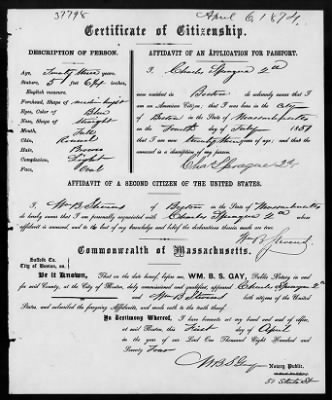 37798 April 6 1874.
Certificate of Citizenship.
DESCRIPTION OF PERSON.
Age, Twenty three years
Stature, 5 feet
English measure.
Forehead, Shape of
Eyes, Color of Blue
Nose, Shape of Straight
Mouth, Full
Chin, Round
Hair, Brown
Complexion, Light
Face, Oval
AFFIDAVIT OF AN APPLICATION FOR PASSPORT.
I, Charles Sprague 2d
now resident in Boston do solemnly swear that I
am an American Citizen; that I was born in the City
of Boston in the State of Massachusetts
on the Fourth day of July
that I am twenty three years of age, and that the
annexed is a description of my person.
Chas Sprague 2d
AFFIDAVIT OF A SECOND CITIZEN OF THE UNITED STATES.
I, Wm B of Boston in the State of Massachusetts
do hereby swear that I am personally acquainted with Charles Sprague 2d whose
affidavit is annexed, and to the best of my knowledge and belief the declarations therein made are true.
Wm B
Commonwealth of Massachusetts.
Suffolk Co.
City of Boston, ss.
Be it Known, That on the date hereof, before me, WM. B. S. GAY, Public Notary in and
for said County, at the City of Boston, duly commissioned and qualified, appeared Charles Sprague 2d
and Wm B both citizens of the United
States, and subscribed the foregoing Affidavits, and made oath to the truth thereof.
In Testimony Whereof, I have hereunto set my hand and seal of office,
at said Boston, this First day of April
in the year of our Lord One Thousand Eight Hundred and
Seventy Four
WBSGay Notary Public.